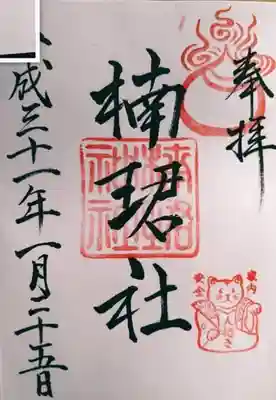 奉拝
楠珺社
成三十一年一月二十五日
家内
安全